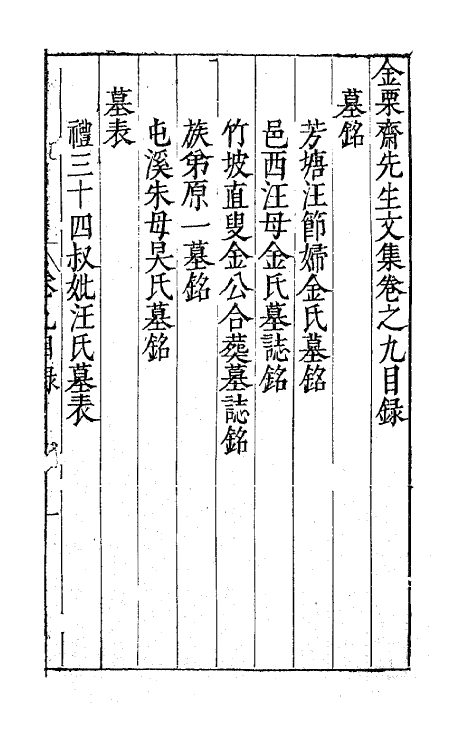 金栗齋先生文集卷之九目録
墓銘
芳塘汪節婦金氏墓銘
邑西汪母金氏墓誌銘
竹坡直叟金公合葬墓誌銘
族弟原一墓銘
屯溪朱母吴氏墓銘
墓表
禮三十四叔妣汪氏墓表
卷九目録
一